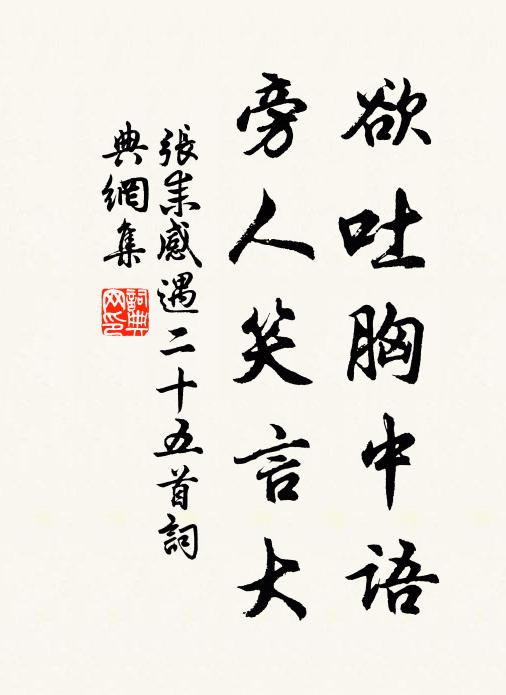 欲吐胸中語
旁人笑言大
張耒感遇二十五首詞
典網集
詞典
网印